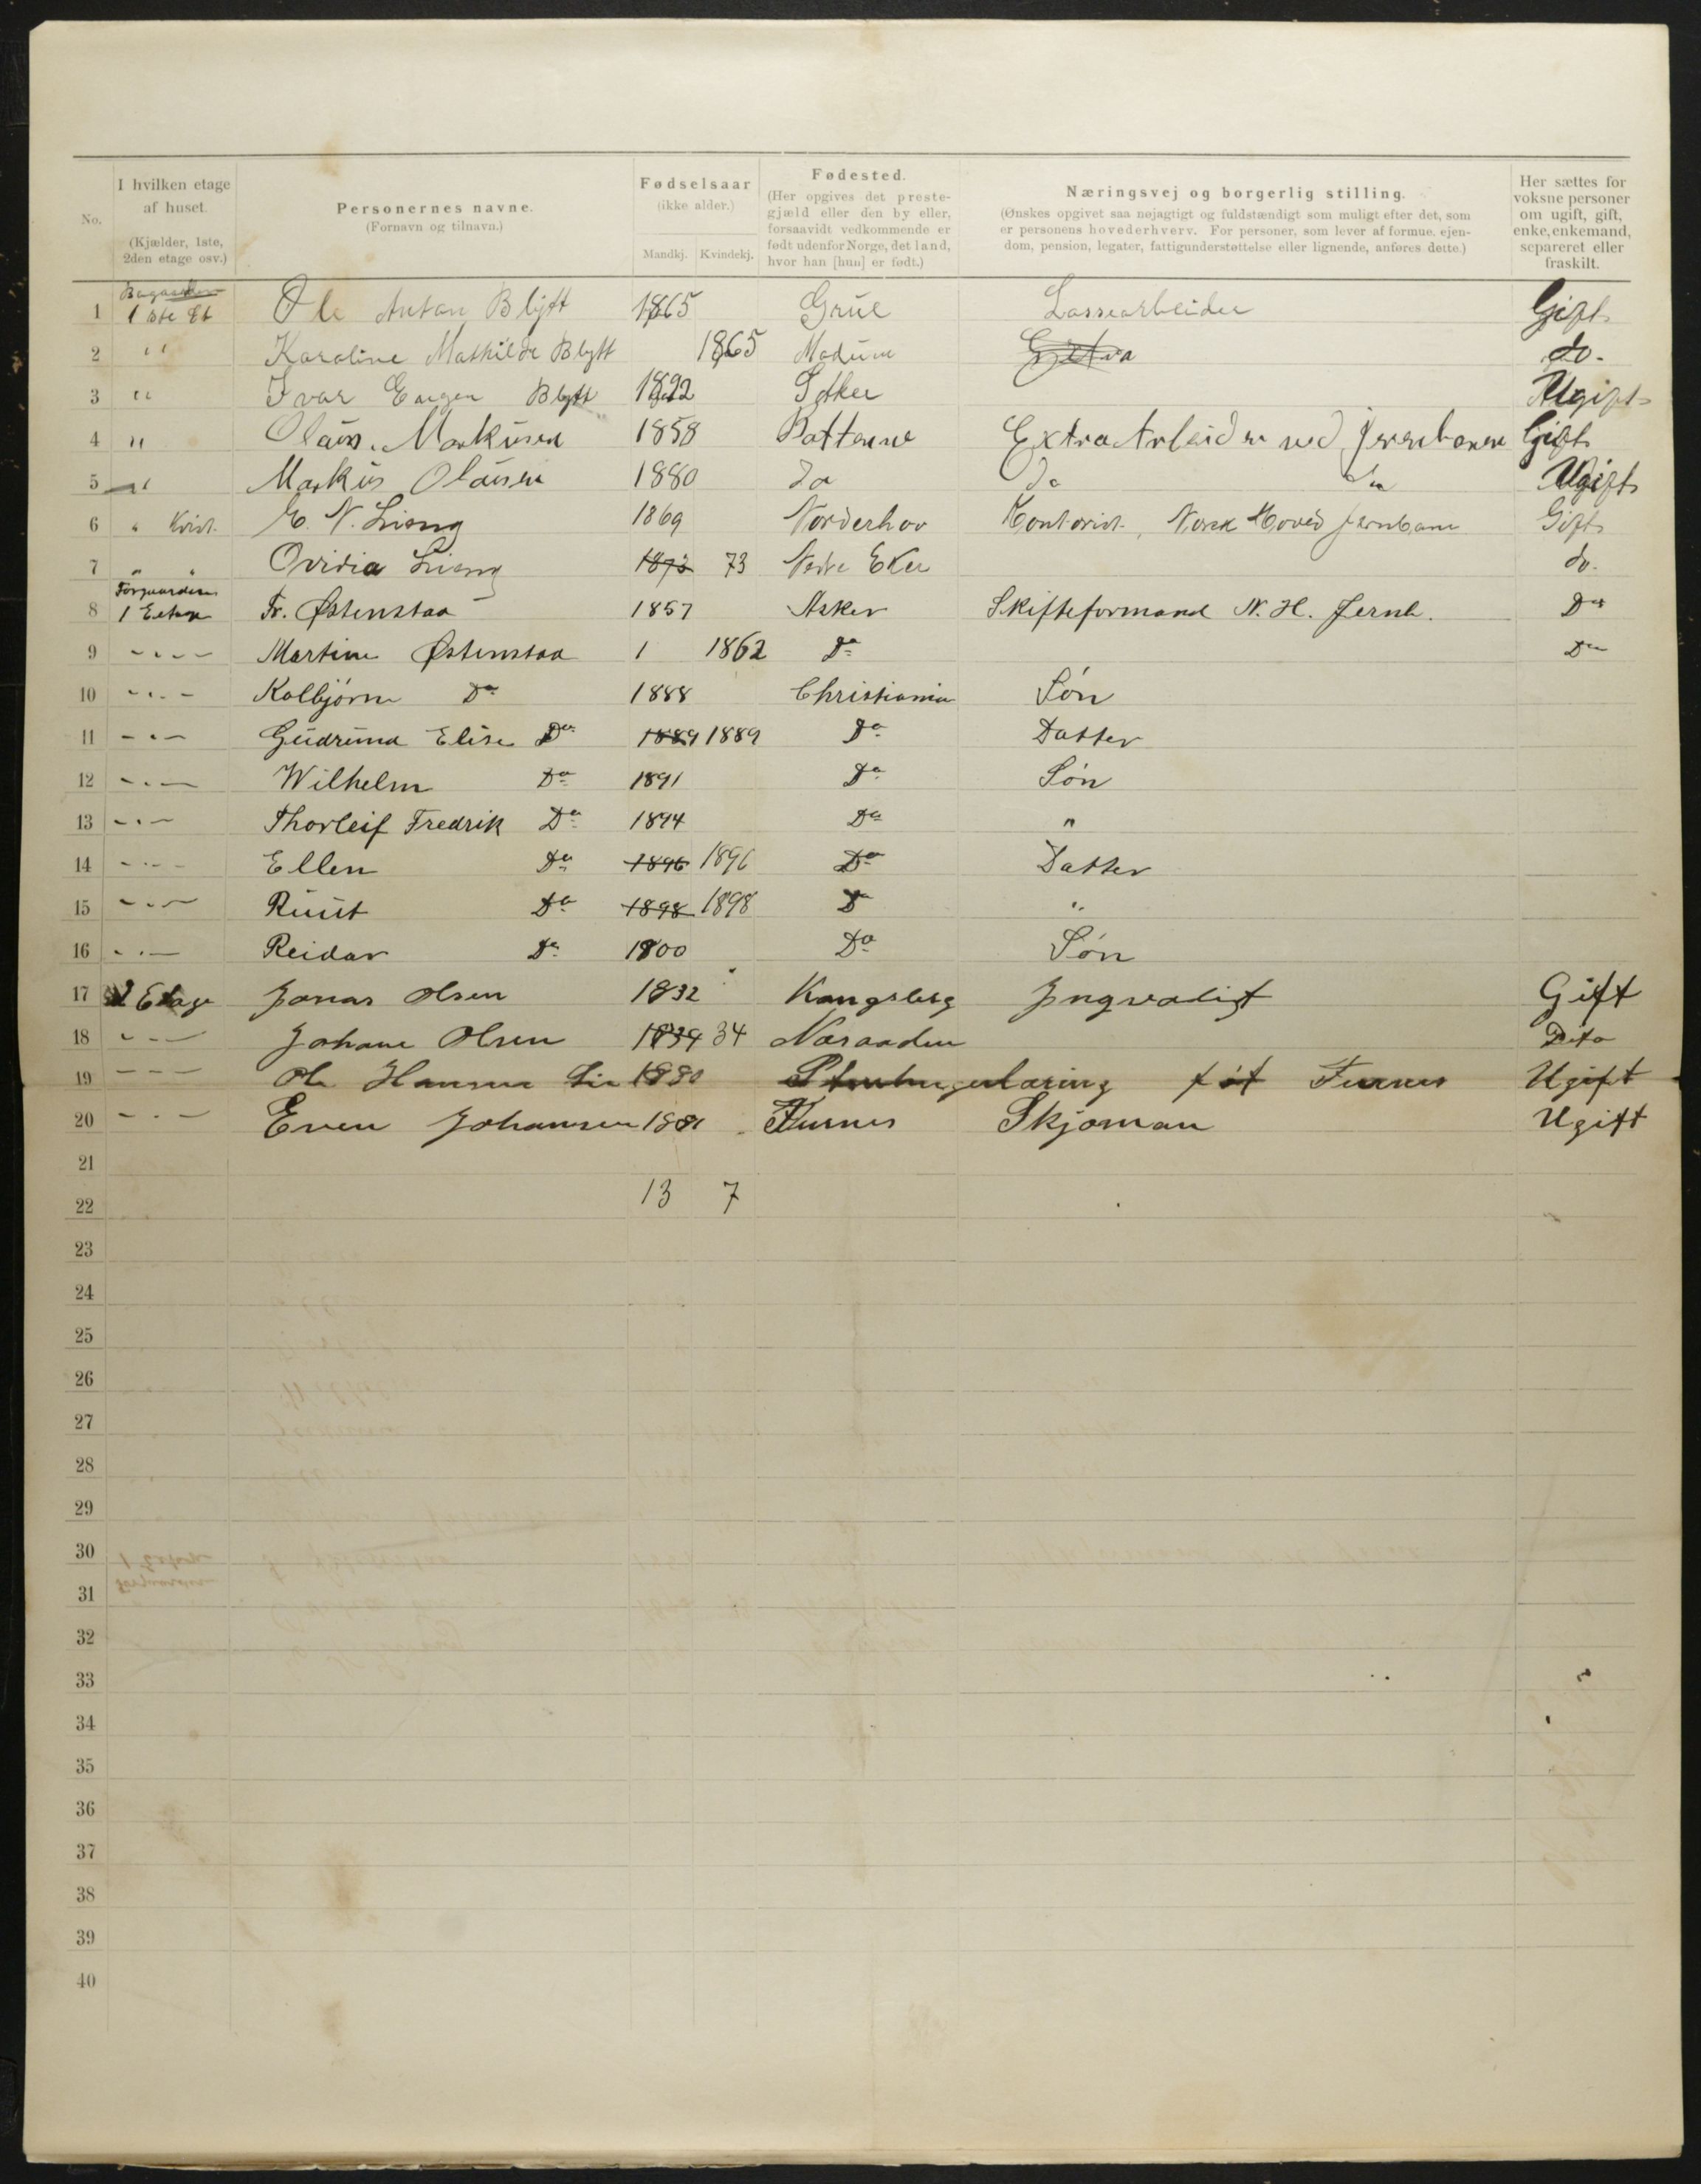 No.
I hvilken etage af huset. (Kjælder, 1ste, 2den etage osv.)
Personernes navne. (Fornavn og tilnavn.)
Fødselsaar (ikke alder.) Mandkj. Kvindekj.
Fødested. (Her opgives det prestegjæld eller den by eller, forsaavidt vedkommende er født udenfor Norge, det land, hvor han [hun] er født.)
Næringsvej og borgerlig stilling. (Ønskes opgivet saa nøjagtigt og fuldstændigt som muligt efter det, som er personens hovederhverv. For personer, som lever af formue, ejendom, pension, legater, fattigunderstøttelse eller lignende, anføres dette.)
Her sættes for voksne personer om ugift, gift, enke, enkemand, separeret eller fraskilt.
1 1ste Et Ole Anton Blytt 1865 Grue Lassearbeider Gift
2 " Karoline Mathilde Blytt 1865 Modum do.
3 " Ivar Eugen Blytt 1892 Ugift
4 " Olaus. Markusen 1858 Extra Arbeider ved Jernbanen Gift
5 " Markus Olausen 1880 do do do Ugift
6 " Kvist. E. N. 1869 Norderhov Kontorist, Norsk Hoved Jernbane Gift
7 " " Ovidia 1873 73 Nedre Eker do.
Forgaarden
8 1 Etage Fr. Østenstad 1857 Asker Skifteformand N. H. Jernb. Do
9 - " - Martine Østenstad 1 1862 Do Do
10 - " - Kolbjørn Do 1888 Christiania Søn
11 - " - Gudrund Elise Do 1889 1889 Do Datter
12 - " - Wilhelm Do 1891 Do Søn
13 - " - Thorleif Fredrik Do 1894 Do "
14 - " - Ellen Do 1896 1896 Do Datter
15 - " - Ruut Do 1898 1898 Do "
16 - " - Reidar Do 1900 Do Søn
17 2 Etage Jonas Olsen 1832 Kongsberg Gift
18 - " - Johane Olsen 1834 34 Dito
19 - " - Ole Hansen 1880 føt Furnes Ugift
20 - " - Even Johansen 1881 Furnes Skjoman Ugift
21
22 13 7
23
24
25
26
27
28
29
30
31
32
33
34
35
36
37
38
39
40